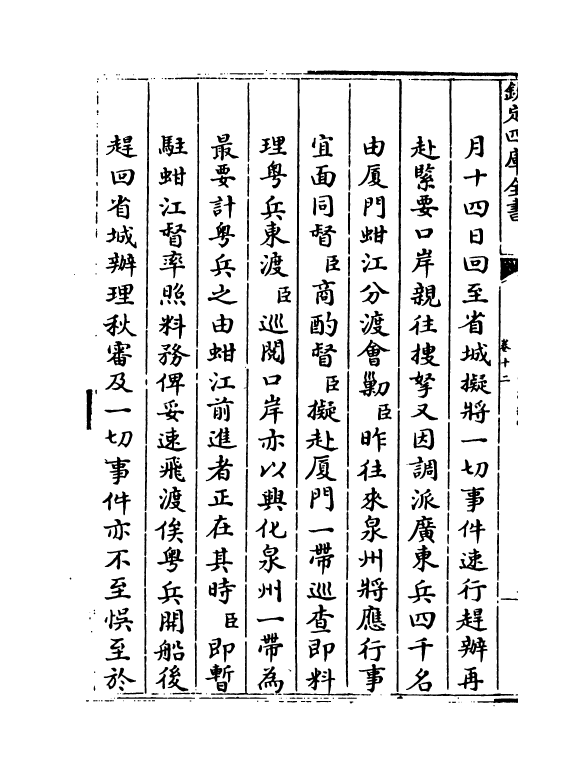 欽定四庫全書
卷十二
月十四日回至省城擬將一切事件速行趕辦再
赴緊要口岸親往搜拏又因調派廣東兵四千名
由厦門蚶江分渡會勦臣昨往來泉州將應行事
宜面同督臣商酌督臣擬赴厦門一帶巡查即料
理粤兵東渡臣巡閱口岸亦以興化泉州一帶為
最要計粤兵之由蚶江前進者正在其時臣即暫
駐蚶江督率照料務俾妥速飛渡俟粤兵開船後
趕回省城辦理秋審及一切事件亦不至悮至於